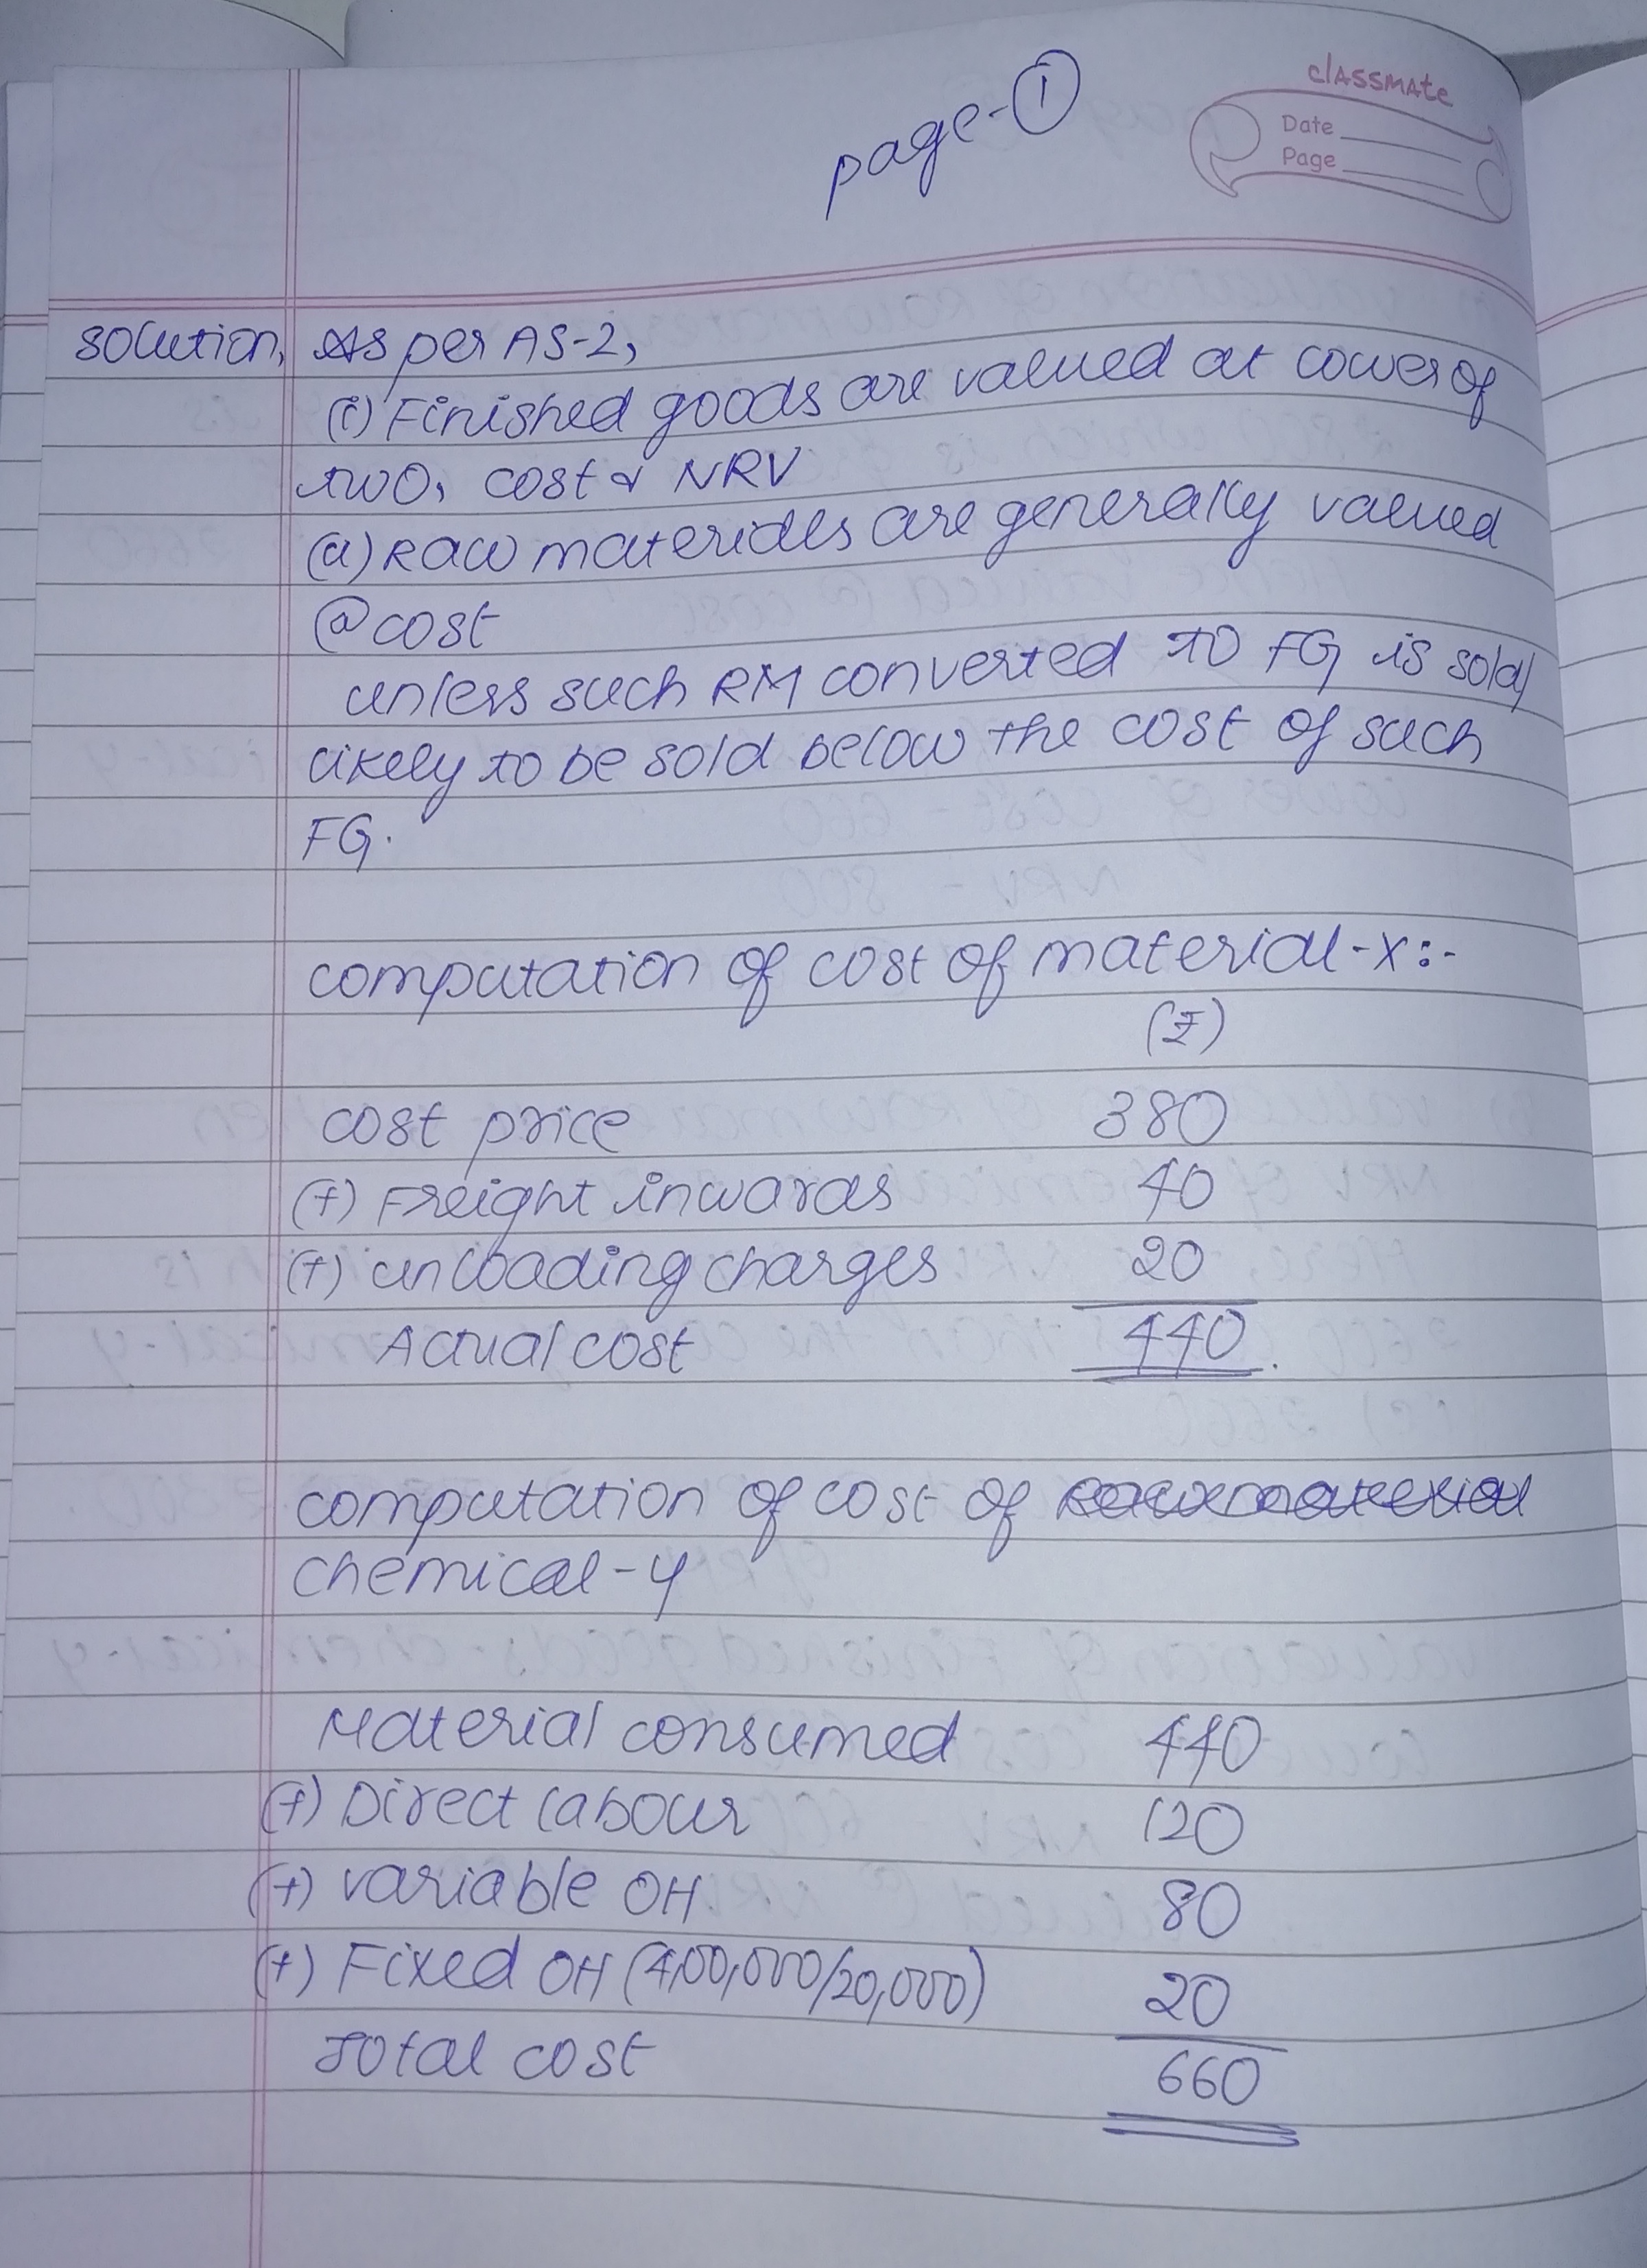 page-①
classmate
Date
Page
solution, As per AS-2,
(i) Finished goods are valued at lower of
two, cost & NRV
(a) Raw materials are generally valued
@ cost
unless such RM converted to FG is sold/
likely to be sold below the cost of such
FG.
computation of cost of material-X:-
(₹)
cost price 380
(+) Freight inwards 40
(+) unloading charges 20
Actual cost 440.
computation of cost of
chemical-Y
Material consumed 440
(+) Direct labour 120
(+) variable OH 80
(+) Fixed OH (4,00,000/20,000) 20
Total cost 660